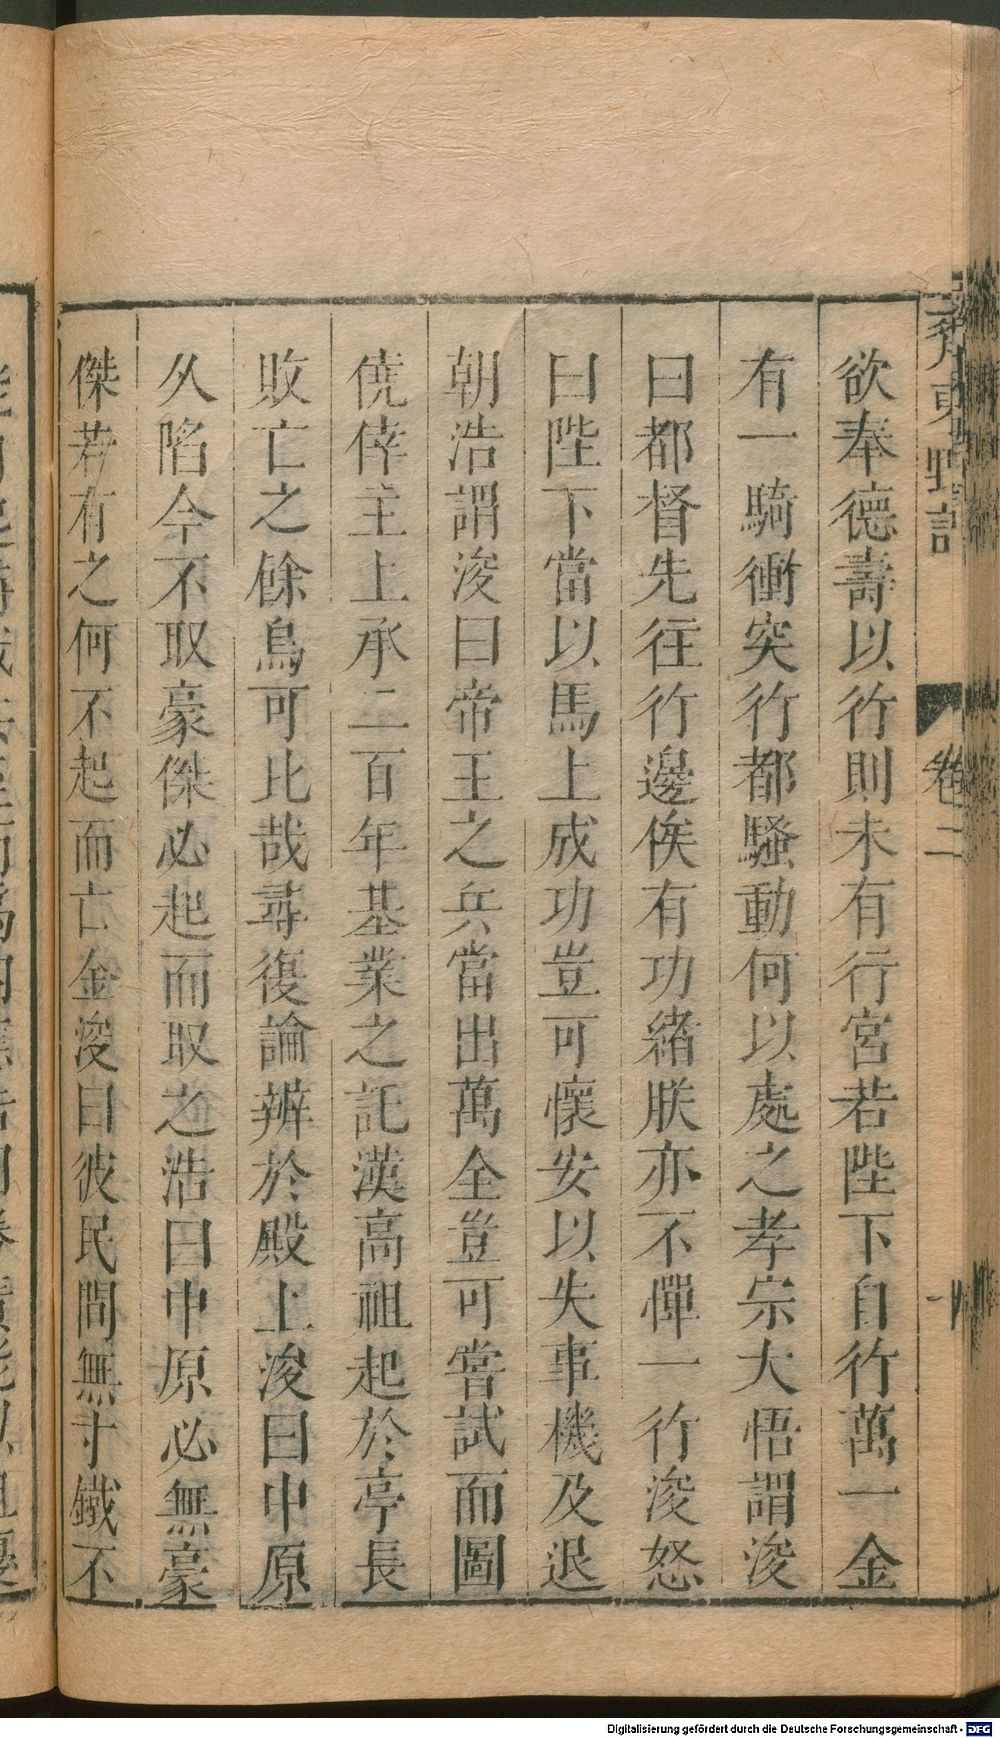 齊東野語
卷二
欲奉德壽以行則未有行宮若陛下自行萬一金
有一騎衝突行都騷動何以處之孝宗大悟謂浚
曰都督先往行邊俟有功緒朕亦不憚一行浚怒
曰陛下當以馬上成功豈可懷安以失事機及退
朝浩謂浚曰帝王之兵當出萬全豈可嘗試而圖
僥倖主上承二百年基業之託漢高祖起於亭長
敗亡之餘烏可比哉尋復論辨於殿上浚曰中原
久陷今不取豪傑必起而取之浩曰中原必無豪
傑若有之何不起而亡金浚曰彼民間無寸鐵不
Digitalisierung gefördert durch die Deutsche Forschungsgemeinschaft - DFG